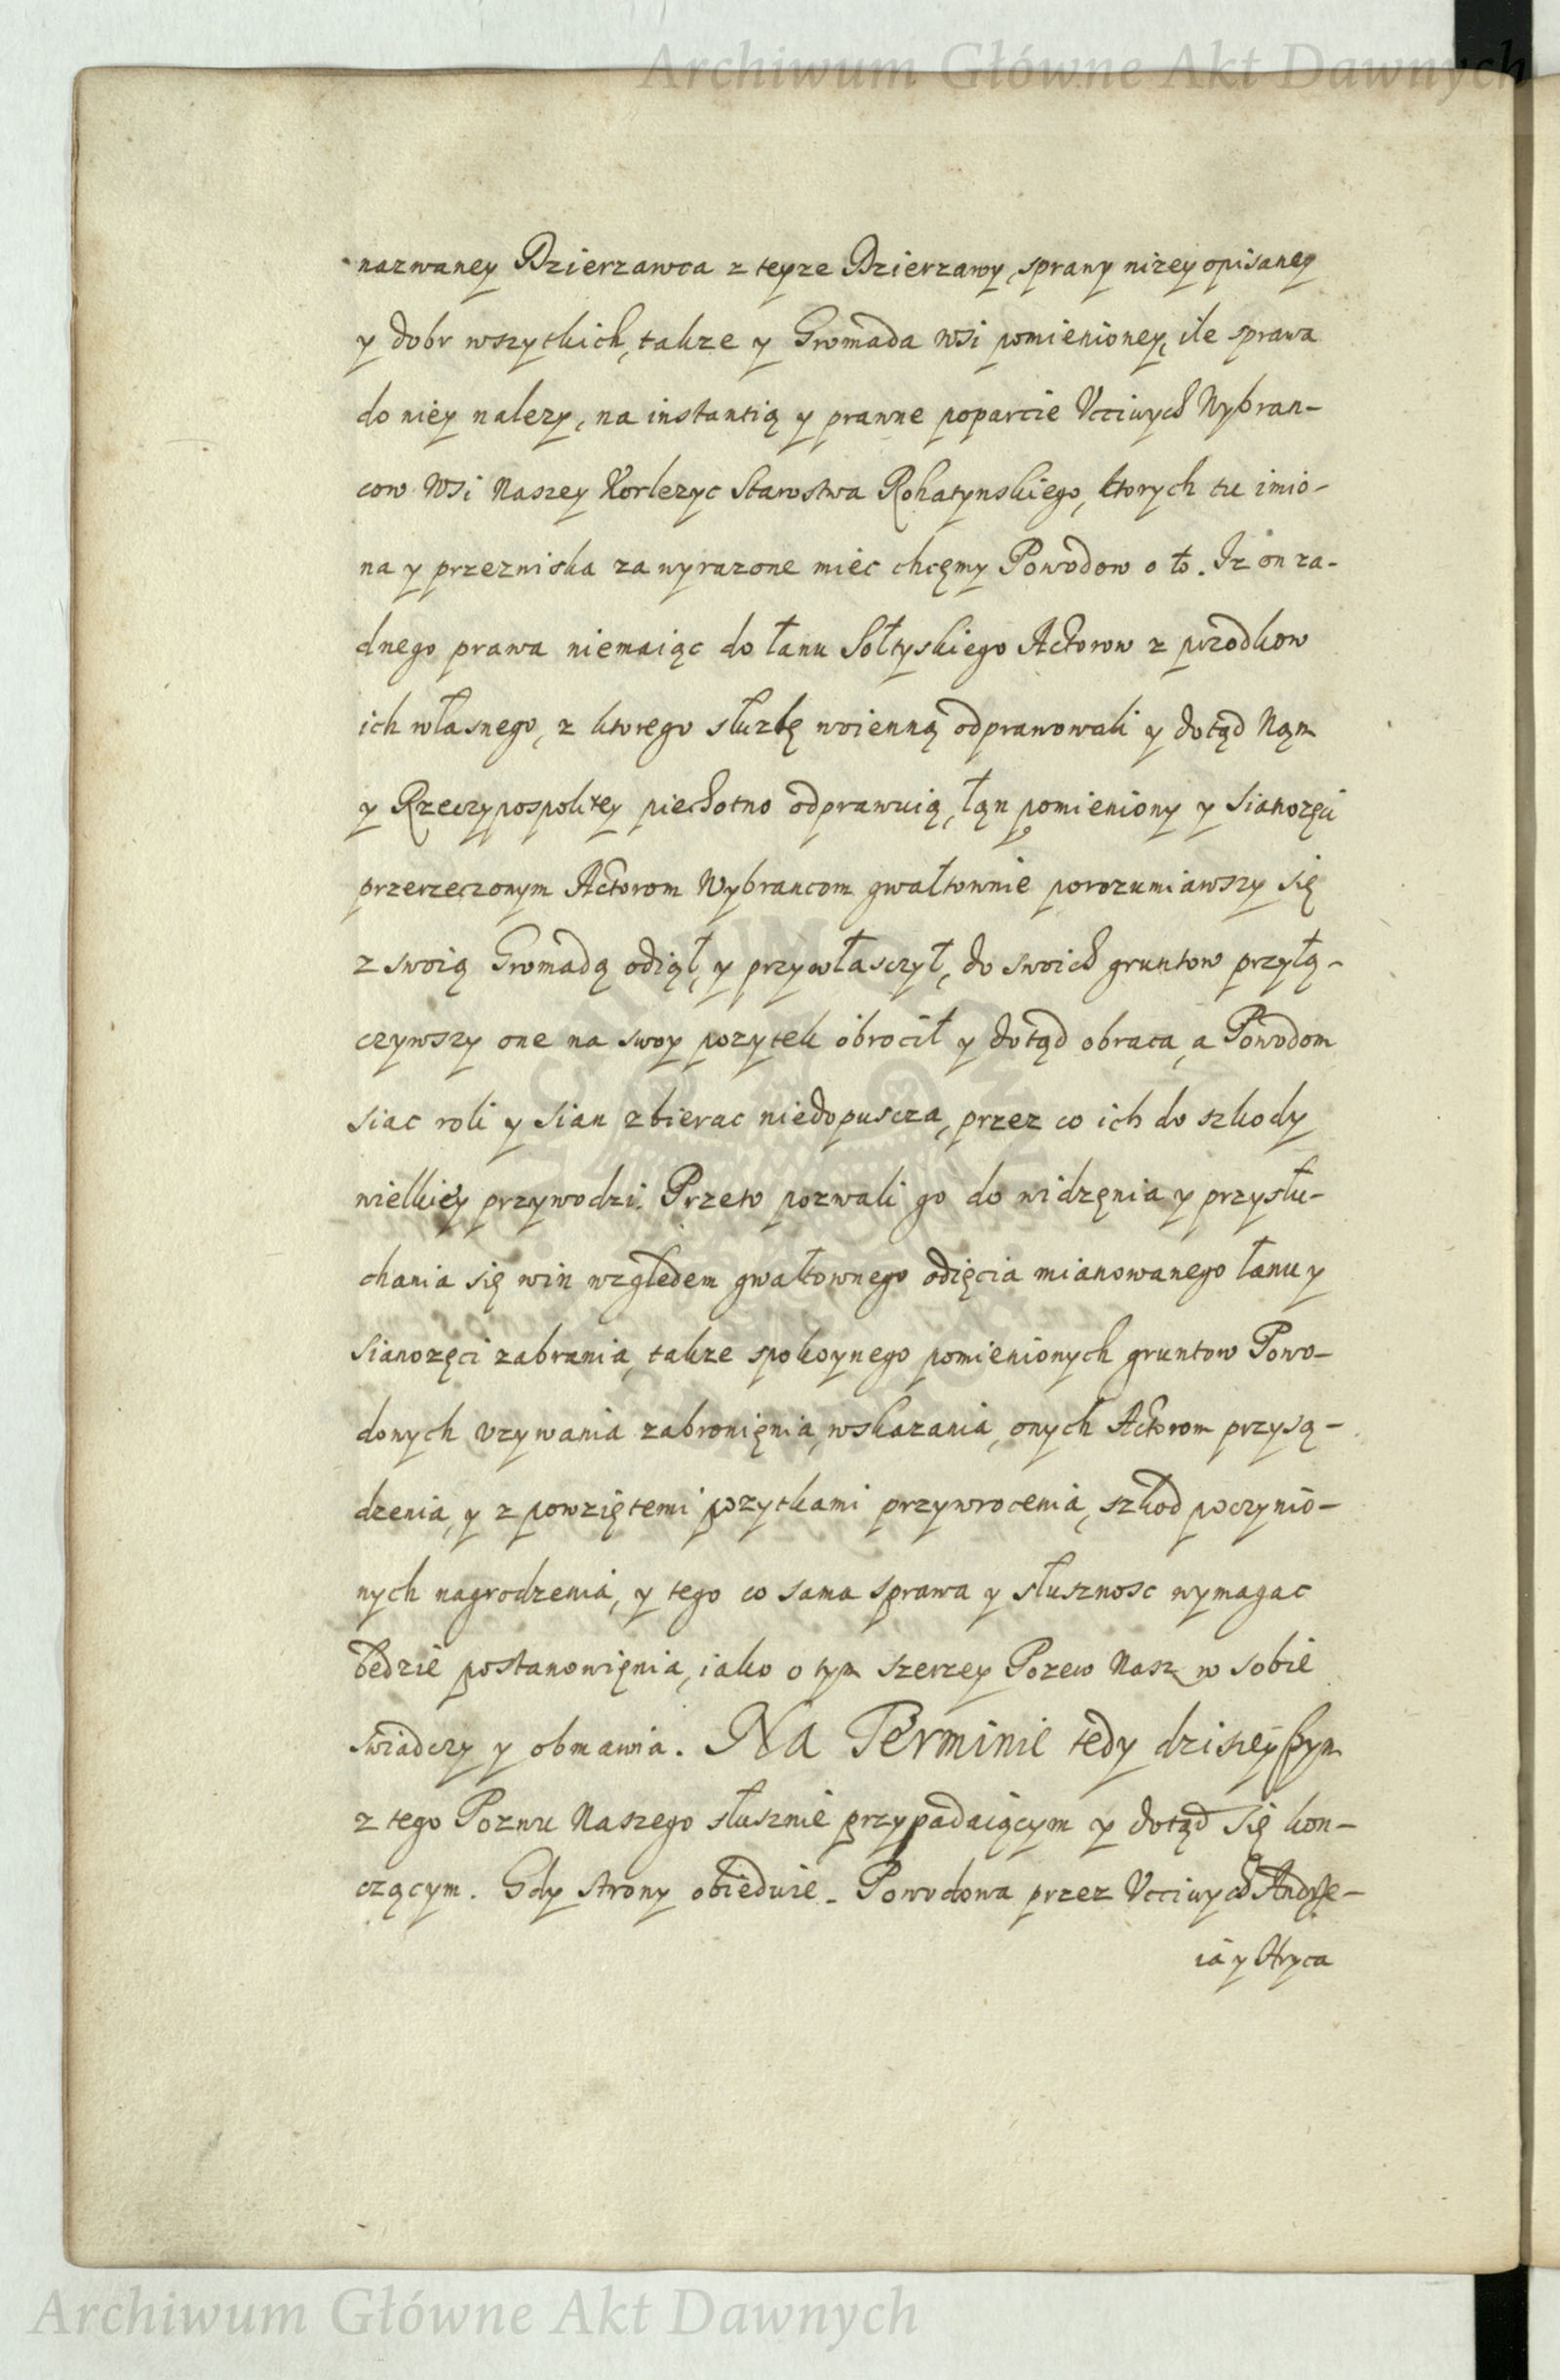 Archiwum Główne Akt Dawnych
nazwaney Dzierzawca z teyze Dzierzawy, sprawy nizey opisaney
y dobr wszytkich, takze y Gromada wsi pomienioney, ile sprawa
do niey nalezy, na instantią y prawne poparcie Vcciwych Wybran-
cow Wsi Naszey Korlezyc Starostwa Rohatynskiego, ktorych tu imio-
na y przezwiska za wyrazone miec chcęmy Powodow o to. Iz on za-
dnego prawa niemaiąc do łanu Sołtyskiego Actorow z przodkow
ich własnego, z ktorego słuzbę woienną odprawowali y dotąd Nąm
y Rzeczypospolitey piechotno odprawuią, łąn pomieniony y Sianozęci
przerzeczonym Actorom Wybrancom gwałtownie porozumiawszy się
z swoią Gromadą odiął, y przywłasczył, do swoich gruntow przyłą-
czywszy one na swoy pozytek obrocił y dotąd obraca, a Powodom
siac roli y sian zbierac niedopuscza, przez co ich do szkody
wielkiey przywodzi. Przeto pozwali go do widzęnia y przysłu-
chania się win względem gwałtownego odięcia mianowanego łanu y
Sianozęci zabrania, takze spokoynego pomienionych gruntow Powo-
dowych vzywania zabronięnia, wskazania, onych Actorom przysą-
dzenia, y z powziętemi pozytkami przywrocenia, szkod poczynio-
nych nagrodzenia, y tego co sama sprawa y słusznosc wymagac
będzie postanowięnia, iako o tym szerzey Pozew Nasz w sobie
swiadczy y obmawia. Na Terminie tedy dzisieyszym
z tego Pozwu Naszego słusznie przypadaiącym y dotąd się kon-
czącym. Gdy strony obiedwie. Powodowa przez Vcciwych Andrze-
ia y Hryca
Archiwum Główne Akt Dawnych